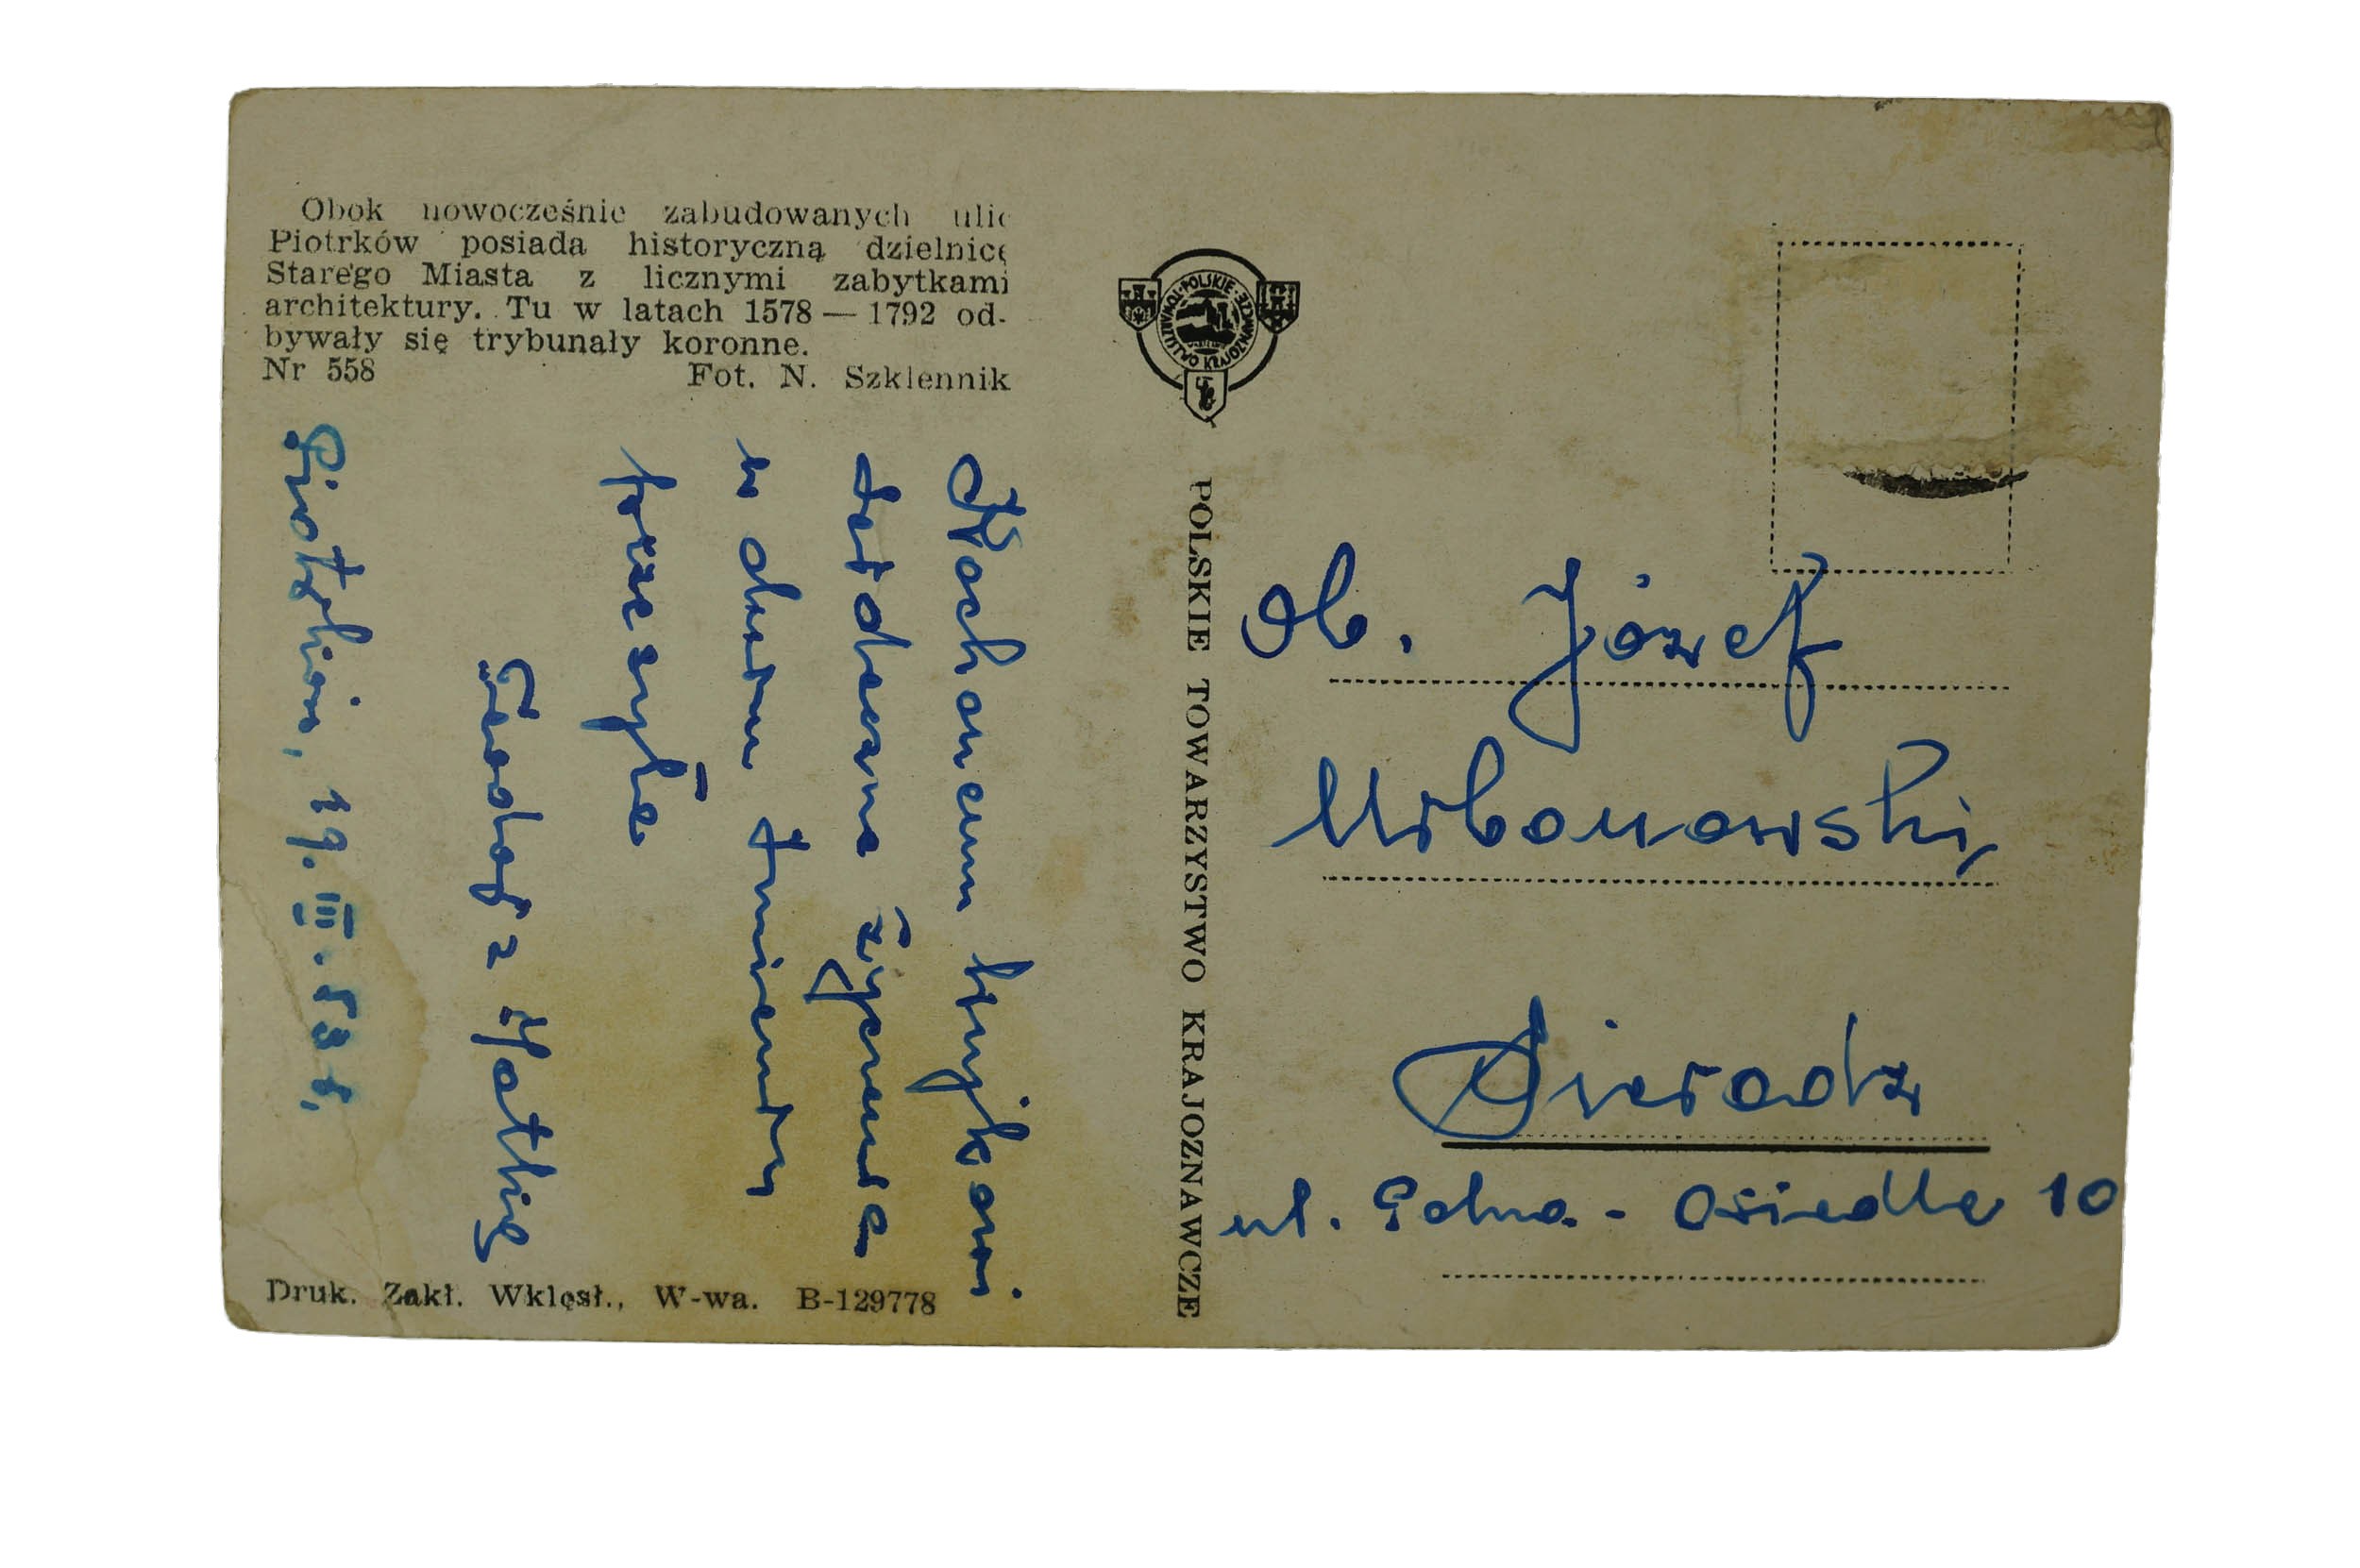 Obok nowocześnie zabudowanych ulic
Piotrków posiada historyczną dzielnicę
Starego Miasta z licznymi zabytkami
architektury. Tu w latach 1578 — 1792 od-
bywały się trybunały koronne.
Nr 558 Fot. N. Szklennik
POLSKIE TOWARZYSTWO KRAJOZNAWCZE
POLSKIE TOWARZYSTWO KRAJOZNAWCZE
Kochanemu Wujkowi
serdeczne życzenia
w dniu Imienin
przesyła
z Matką
Piotrków, 19.III.53 r.
Ob. Józef
Urbanowski,
Sieradz
ul. Polna - Osiedle 10
Druk. Zakł. Wklęsł., W-wa. B-129778